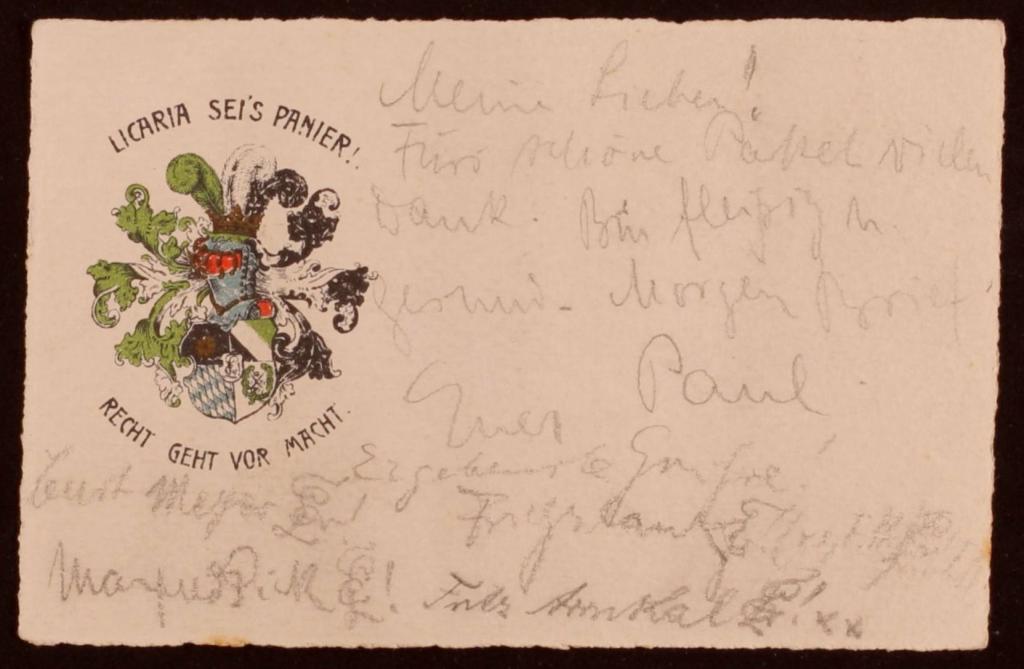 LICARIA SEI'S PANIER!
RECHT GEHT VOR MACHT.
Meine Lieben!
Fürs schöne Päckel vielen
Dank. Bin fleißig u.
gesund. Morgen Brief
Euer Paul.
Ergebenste Grüße!
Curt Meyer
Fritz
Manfred Pick !
Fritz xx